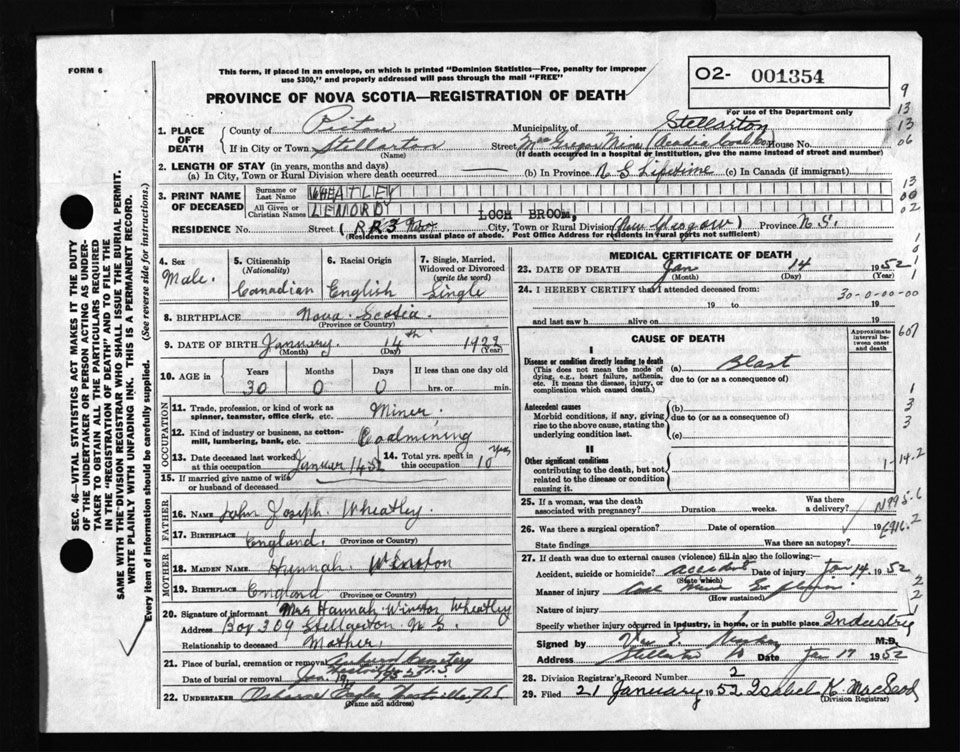 FORM 6
This form, if placed in an envelope, on which is printed "Dominion Statistics—Free, penalty for improper
use $300," and properly addressed will pass through the mail "FREE"
02- 001354
For use of the Department only
PROVINCE OF NOVA SCOTIA—REGISTRATION OF DEATH
9
13
13
06
13
00
02
1. PLACE OF DEATH
County of Pictou Municipality of Stellarton
If in City or Town Stellarton (Name) Street MacGregor Mine (Acadia Coal Co House No.
(If death occurred in a hospital or institution, give the name instead of street and number)
2. LENGTH OF STAY (in years, months and days)
(a) In City, Town or Rural Division where death occurred — (b) In Province N S Lifetime (c) In Canada (if immigrant)
3. PRINT NAME OF DECEASED
Surname or Last Name WHEATLEY
All Given or Christian Names LEMORDY
LOCH BROOM,
RESIDENCE No. Street (RR3 City, Town or Rural Division (New Glasgow) Province N.S.
(Residence means usual place of abode. Post Office Address for residents in rural parts not sufficient)
4. Sex
Male.
5. Citizenship
(Nationality)
Canadian
6. Racial Origin
English
7. Single, Married, Widowed or Divorced
(write the word)
Single
8. BIRTHPLACE Nova Scotia.
(Province or Country)
9. DATE OF BIRTH January 14th 1922
(Month) (Day) (Year)
10. AGE in
Years Months Days If less than one day old
30 0 0 hrs. or min.
OCCUPATION
11. Trade, profession, or kind of work as
spinner, teamster, office clerk, etc. Miner.
12. Kind of industry or business, as cotton-
mill, lumbering, bank, etc. Coalmining
13. Date deceased last worked
at this occupation Januar 14 52
14. Total yrs. spent in
this occupation 10 yrs
15. If married give name of wife
or husband of deceased
FATHER
16. NAME John Joseph Wheatley.
17. BIRTHPLACE England.
(Province or Country)
MOTHER
18. MAIDEN NAME Hannah Winston
19. BIRTHPLACE England
(Province or Country)
20. Signature of informant Mrs Hannah Winston Wheatley
Address Box 309 Stellarton N.S.
Relationship to deceased Mother.
21. Place of burial, cremation or removal Cemetery
Date of burial or removal Jan. 19
22. UNDERTAKER Westville N.S.
(Name and address)
MEDICAL CERTIFICATE OF DEATH
23. DATE OF DEATH Jan 14 1952
(Month) (Day) (Year)
24. I HEREBY CERTIFY that I attended deceased from:
30-0-00-00
19 to 19
and last saw h alive on 19
CAUSE OF DEATH
Approximate interval between onset and death
607
I
Disease or condition directly leading to death
(This does not mean the mode of dying, e.g., heart failure, asthenia, etc. It means the disease, injury, or complication which caused death.)
(a) Blast
due to (or as a consequence of)
Antecedent causes
Morbid conditions, if any, giving rise to the above cause, stating the underlying condition last.
(b)
due to (or as a consequence of)
(c)
1
3
3
II
Other significant conditions
contributing to the death, but not related to the disease or condition causing it.
1-14.2
25. If a woman, was the death
associated with pregnancy? Duration weeks. Was there a delivery?
N995.6
26. Was there a surgical operation? Date of operation 19
E916.2
State findings Was there an autopsy?
27. If death was due to external causes (violence) fill in also the following:—
Accident, suicide or homicide? accident Date of injury Jan 14. 1952
(State which)
Manner of injury Coal mine Explosion
(How sustained)
Nature of injury
Specify whether injury occurred in industry, in home, or in public place Industry
2
2
1
Signed by M.D.
Address Stellarton Date Jan 17 1952
28. Division Registrar's Record Number 2
29. Filed 21 January 1952 Isabel K. MacLeod
(Division Registrar)
SEC. 46—VITAL STATISTICS ACT MAKES IT THE DUTY
OF THE UNDERTAKER OR PERSON ACTING AS UNDER-
TAKER TO OBTAIN ALL THE PARTICULARS REQUIRED
IN THE "REGISTRATION OF DEATH" AND TO FILE THE
SAME WITH THE DIVISION REGISTRAR WHO SHALL ISSUE THE BURIAL PERMIT.
WRITE PLAINLY WITH UNFADING INK. THIS IS A PERMANENT RECORD.
Every item of information should be carefully supplied. (See reverse side for instructions.)